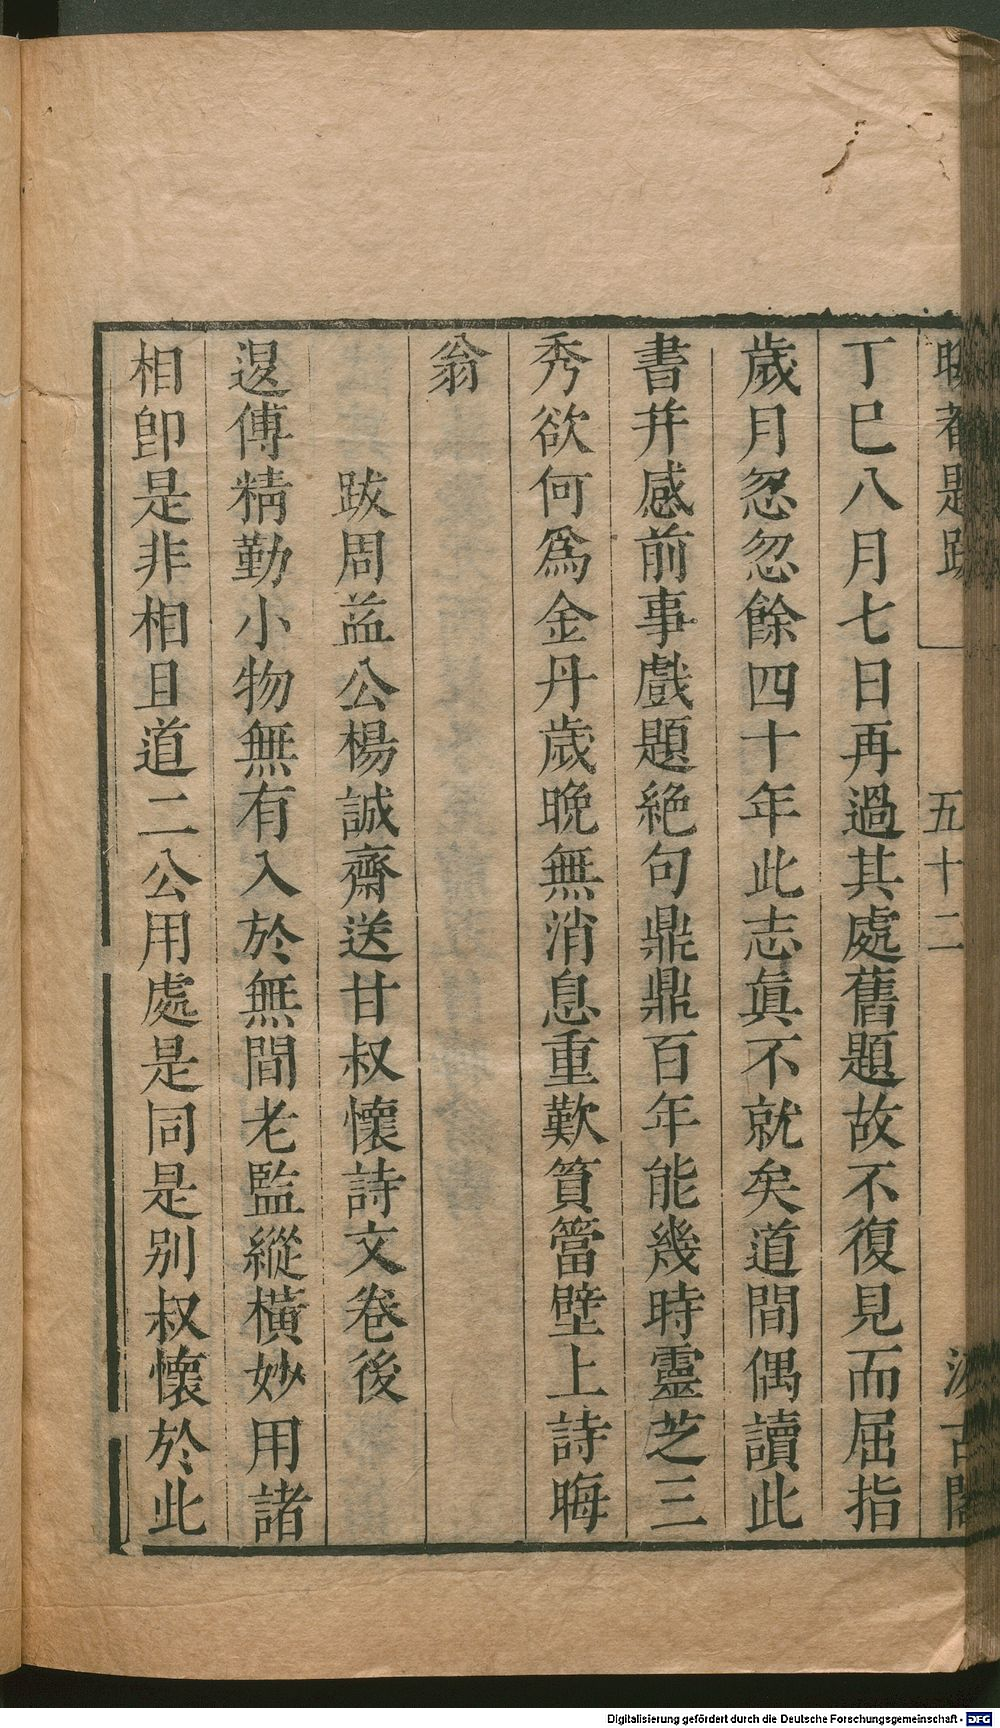 晦菴題跋 五十二 汲古閣
丁巳八月七日再過其處舊題故不復見而屈指
歲月忽忽餘四十年此志眞不就矣道間偶讀此
書幷感前事戲題絶句鼎鼎百年能幾時靈芝三
秀欲何爲金丹歲晚無消息重歎篔簹壁上詩晦
翁
跋周益公楊誠齋送甘叔懷詩文卷後
退傅精勤小物無有入於無間老監縱橫妙用諸
相卽是非相且道二公用處是同是別叔懷於此
Digitalisierung gefördert durch die Deutsche Forschungsgemeinschaft - DFG